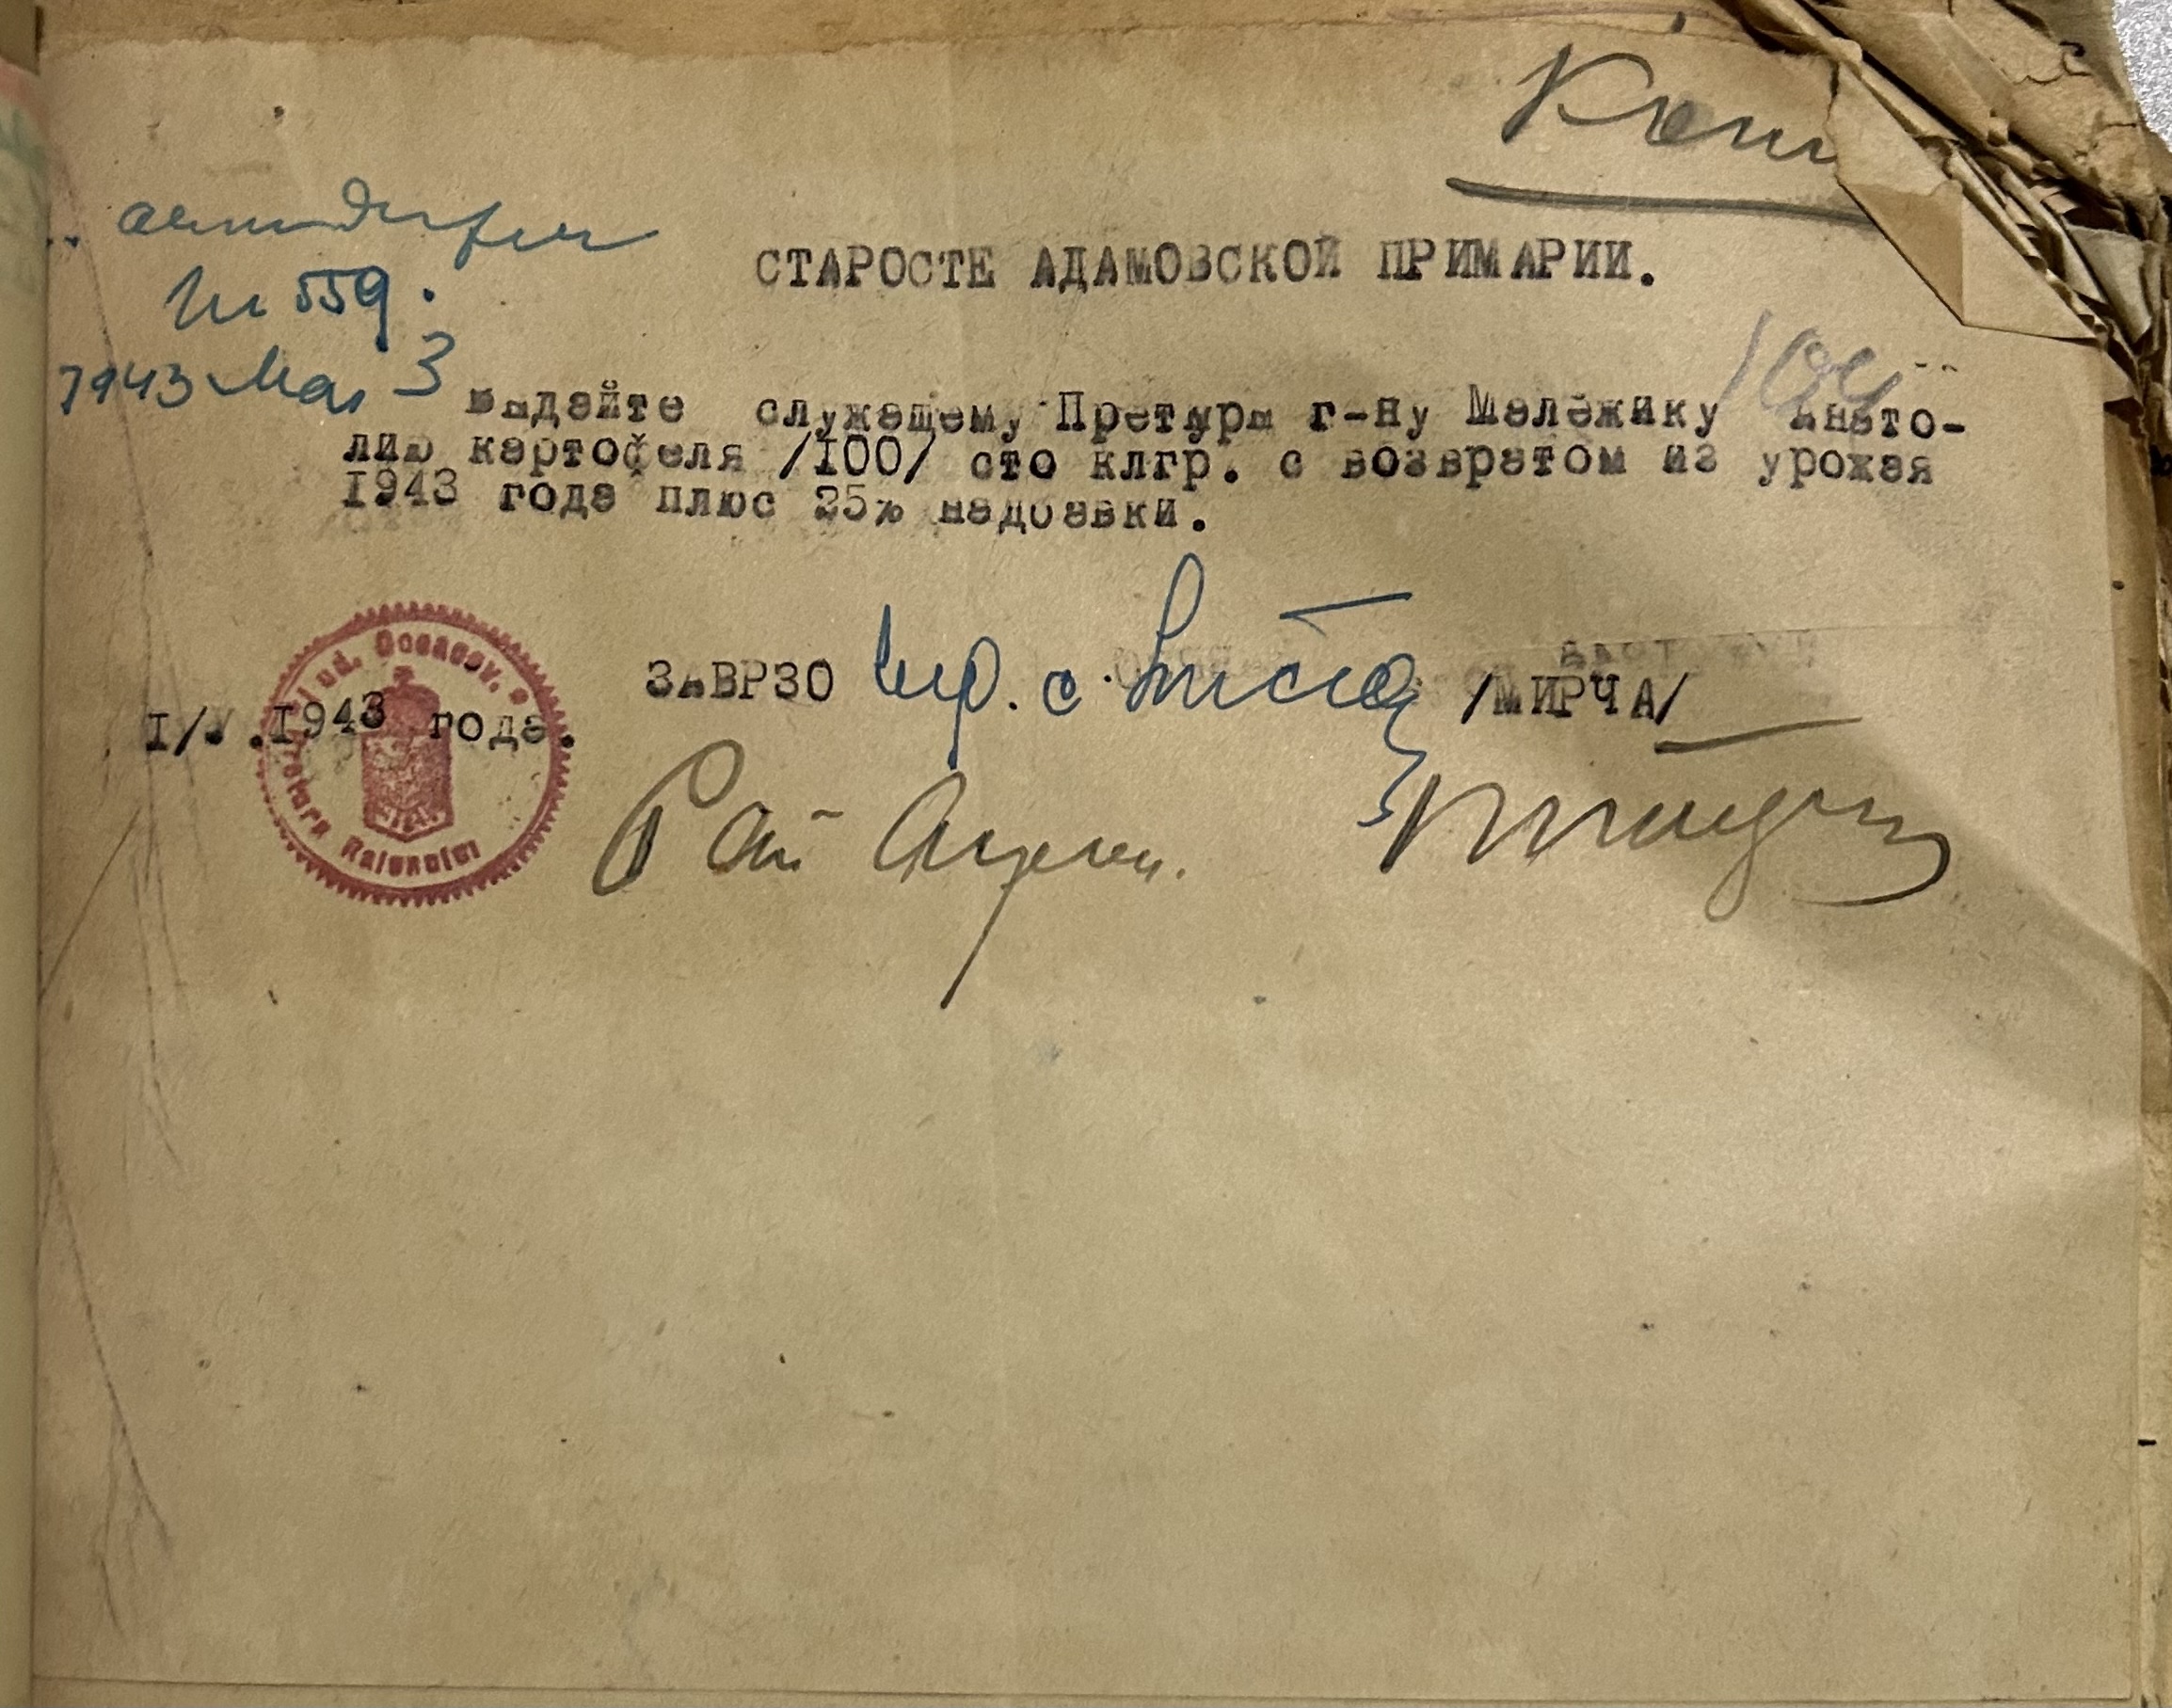 № 559.
1943 Mai 3
СТАРОСТЕ АДАМОВСКОЙ ПРИМАРИИ.
104
Выдайте служащему Претуры г-ну Маложику Анато-
лию картофеля /100/ сто клгр. с возвратом из урожая
1943 года плюс 25% надбавки.
ЗАВРЗО /МИРЧА/
I/V.1943 года.
Jud. Oceacov.
Pretura Raionului
Рай Агроном.